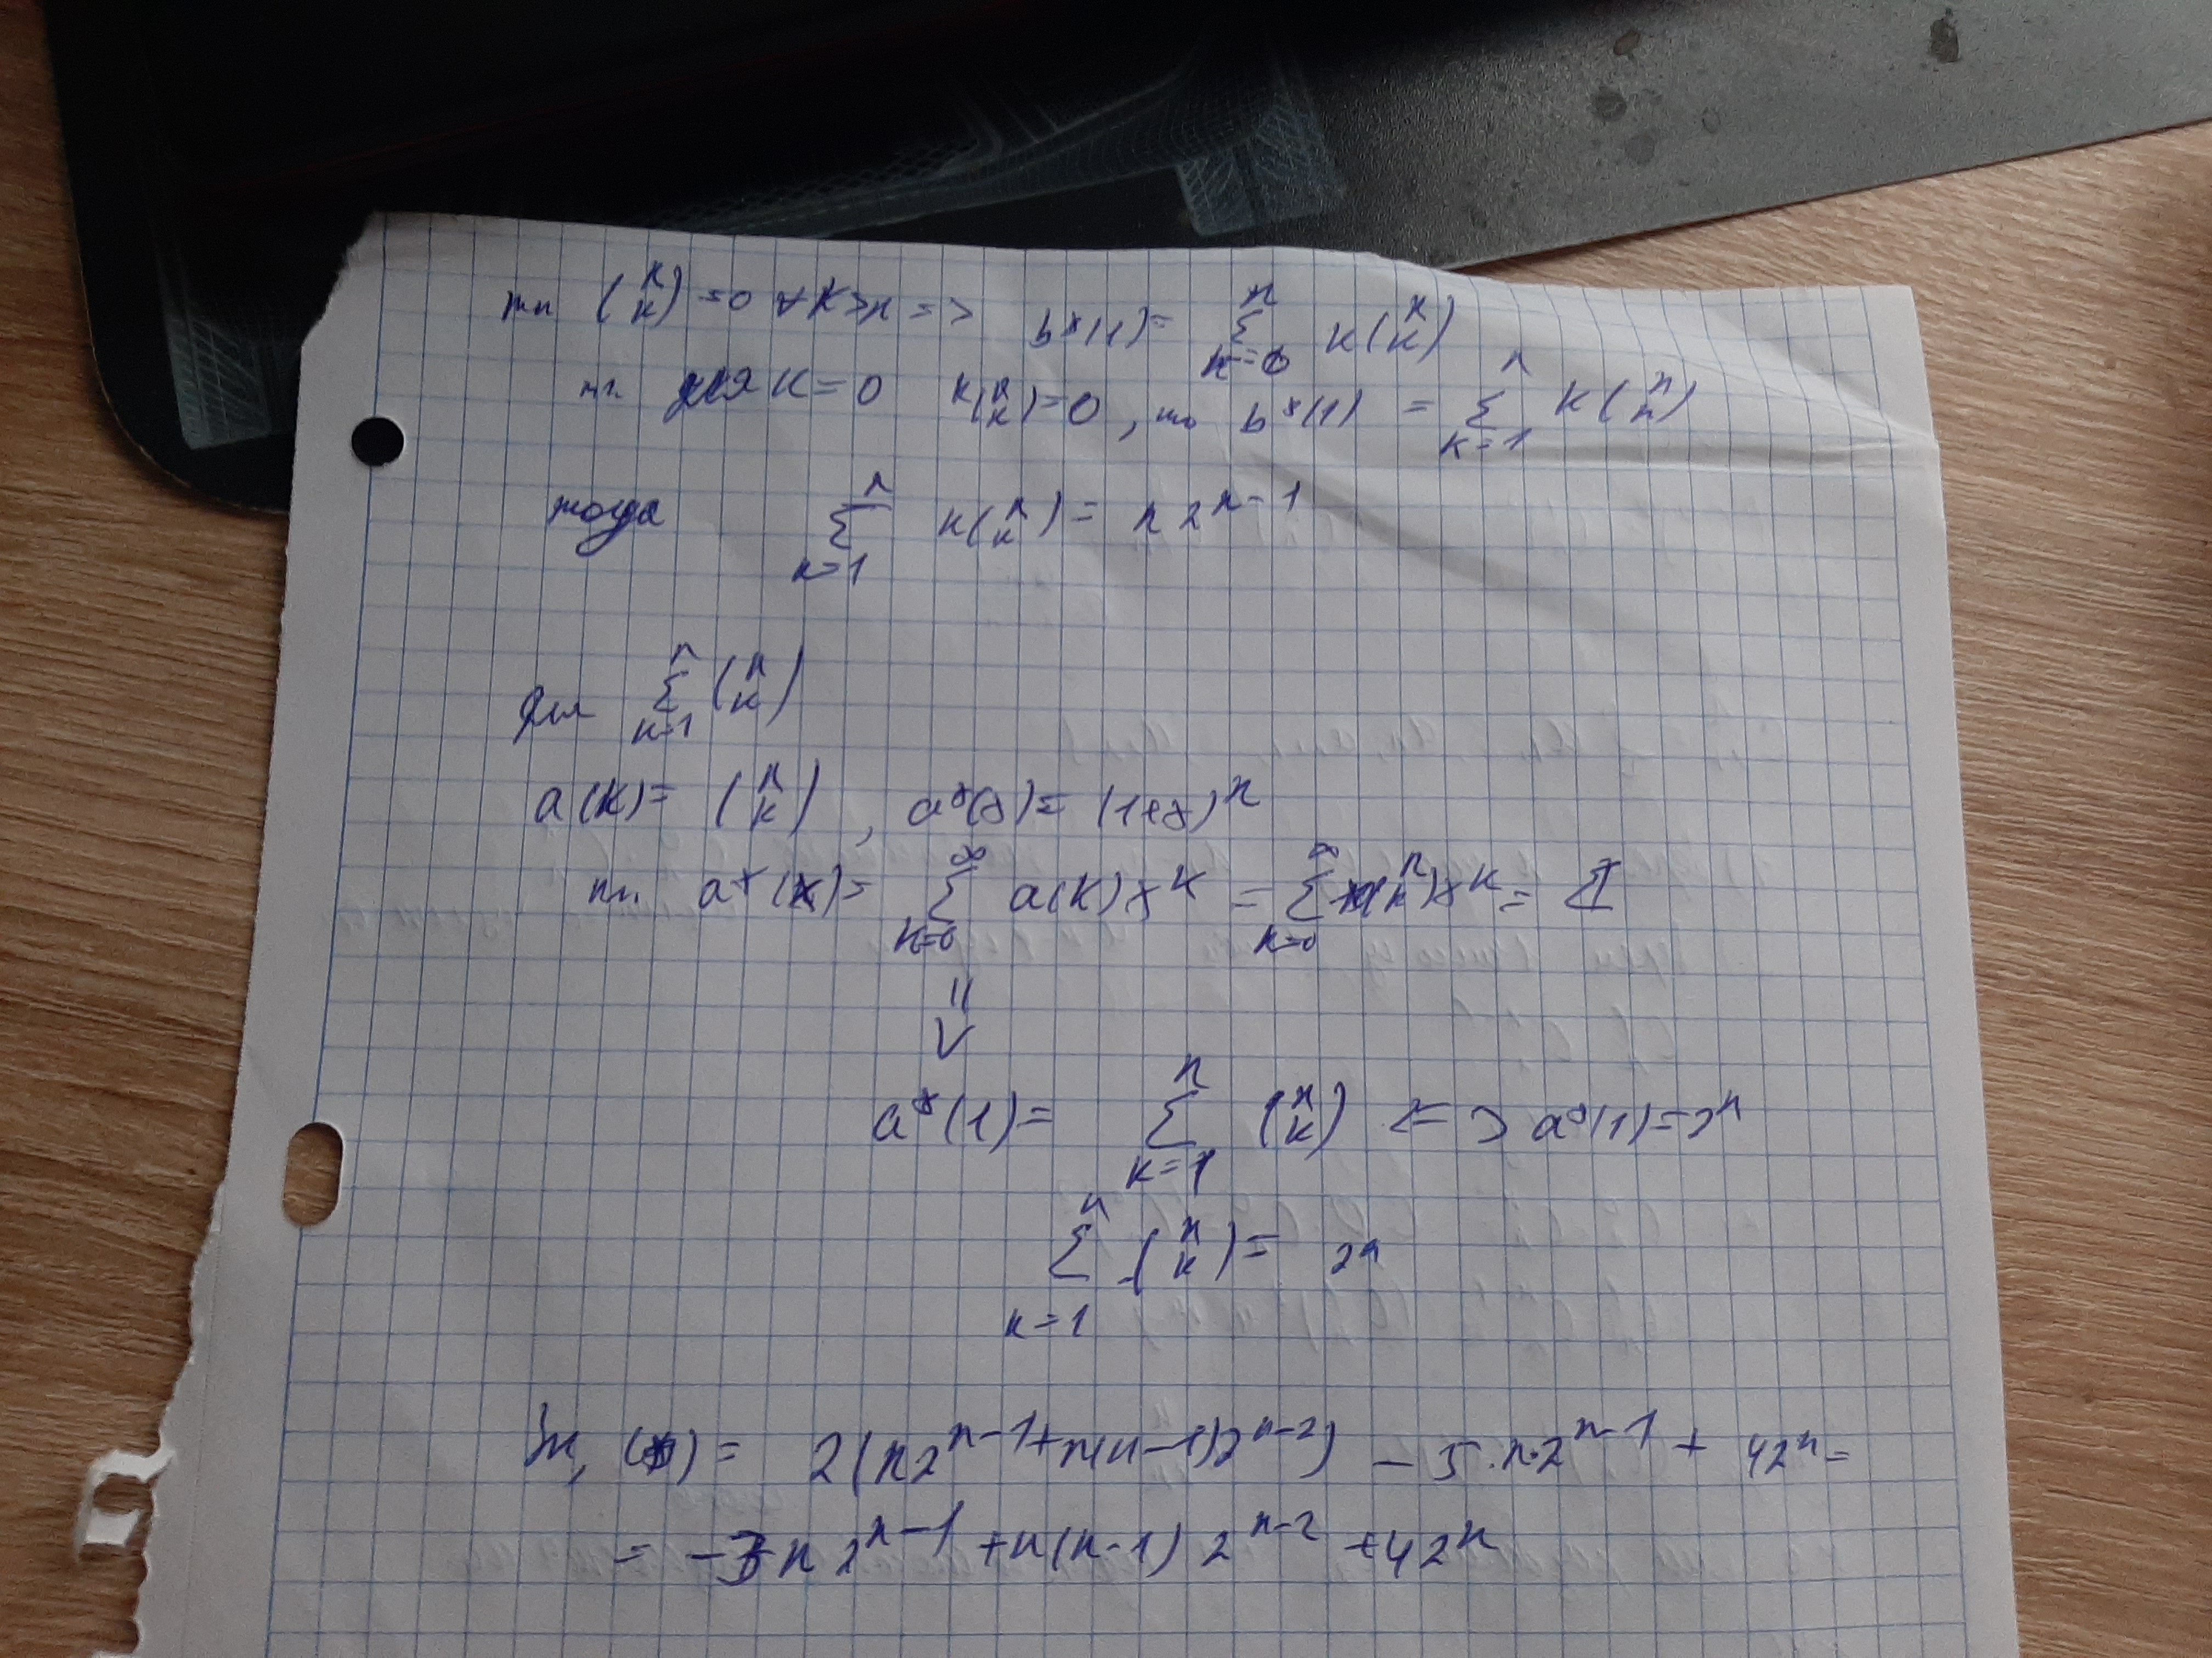 тк (n k) = 0 ∀k>n => b*(1) = Σ_{k=0}^{n} k(n k)
тк для k=0 k(n k)=0, то b*(1) = Σ_{k=1}^{n} k(n n)
тогда Σ_{k=1}^{n} k(n k) = n 2^{n-1}
для Σ_{k=1}^{n} (n k)
a(k) = (n k), a*(x) = (1+x)^n
тк. a*(x) = Σ_{k=0}^{∞} a(k) x^k = Σ_{k=0}^{∞} (n k) x^k =
=>
a*(1) = Σ_{k=1}^{n} (n k) <=> a*(1) = 2^n
Σ_{k=1}^{n} (n k) = 2^n
= 2(n2^{n-1} + n(n-1)2^{n-2}) - 5·n·2^{n-1} + 42^n =
= -3n 2^{n-1} + n(n-1) 2^{n-2} + 42^n